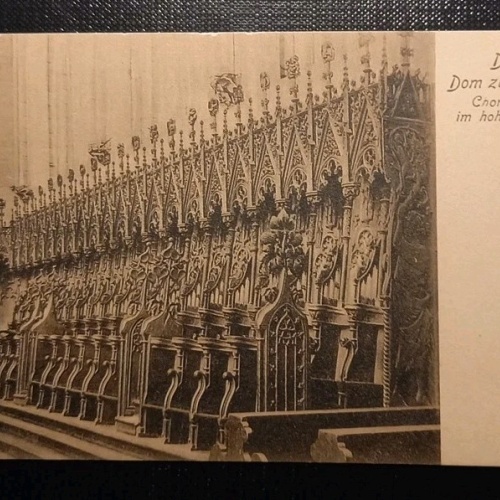 D
Dom zu
Chor
im hoh